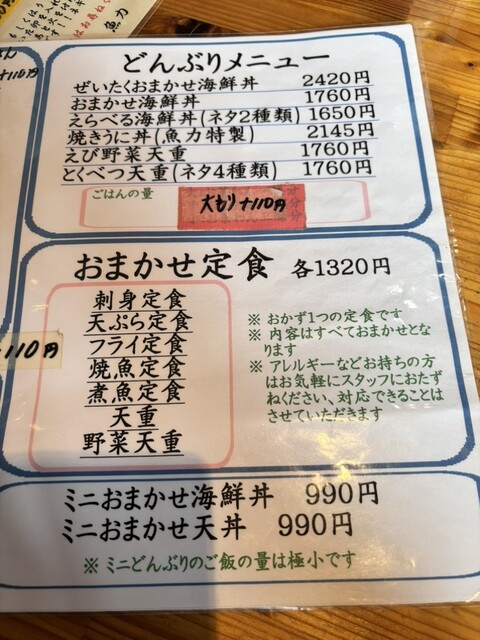 魚力
+110円
どんぶりメニュー
ぜいたくおまかせ海鮮丼 2420円
おまかせ海鮮丼 1760円
えらべる海鮮丼(ネタ2種類) 1650円
焼きうに丼(魚力特製) 2145円
えび野菜天重 1760円
とくべつ天重(ネタ4種類) 1760円
ごはんの量
大もり+110円
おまかせ定食 各1320円
刺身定食
天ぷら定食
フライ定食
焼魚定食
煮魚定食
天重
野菜天重
※ おかず1つの定食です
※ 内容はすべておまかせとな
ります
※ アレルギーなどお持ちの方
はお気軽にスタッフにおたず
ねください、対応できることは
させていただきます
110円
ミニおまかせ海鮮丼 990円
ミニおまかせ天丼 990円
※ ミニどんぶりのご飯の量は極小です